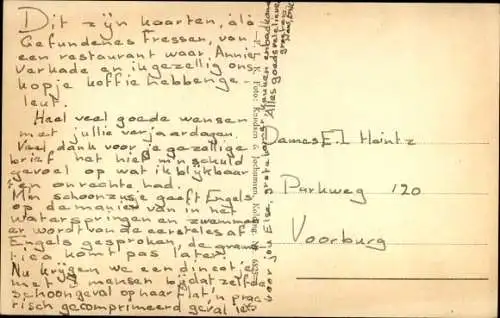 Dit zijn kaarten, als
Gefundenes Fressen, van
een restaurant waar Annie
Verkade en ik gezellig ons
kopje koffie hebben ge-
leut.
Heel veel goede wensen
met jullie verjaardagen.
Veel dank voor je gezellige
brief het hielp m'n schuld
gevoel op wat ik blijkbaar
ten onrechte had.
M'n schoonzusje geeft Engels
op de manier van in het
water springen en zwemmen
er wordt van de eerste les af
Engels gesproken, de gramma
tica komt pas later.
Nu krijgen we een directje
met 5 mensen bij dat zelfde
schoongeval op haar flat, 'n prac
tisch gecomprimeerd geval is
voor jou Else,
keuken en badkamer
Alles goeds relatieve
groeten
Foto: Knudsen & Jochumsen, Kolding.
Dames E.L. Heintz
Parkweg 120
Voorburg